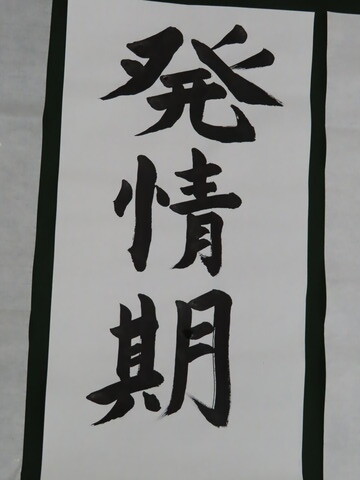 発情期